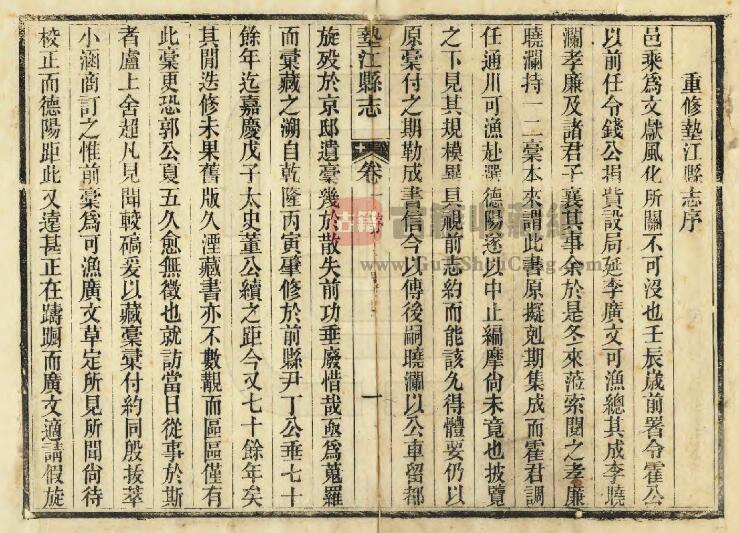 重修墊江縣志序
邑乘為文獻風化所關不可沒也壬辰歲前署令霍公
以前任令錢公捐貲設局延李廣文可漁總其成李曉
瀾孝廉及諸君子襄其事余於是冬來蒞索閱之孝廉
曉瀾持一二稾本來謂此書原擬剋期集成而霍君調
任通川可漁赴選德陽遂以中止編摩尚未竟也披覽
之下見其規模畢具視前志約而能該允得體要仍以
原稾付之期勒成書信今以傳後嗣曉瀾以公車留都
墊江縣志
卷
序
一
旋歿於京邸遺稾幾於散失前功垂廢惜哉亟為蒐羅
而彙藏之溯自乾隆丙寅肇修於前縣尹丁公垂七十
餘年迄嘉慶戊子太史董公續之距今又七十餘年矣
其閒迭修未果舊版久湮藏書亦不數覯而區區僅有
此稾更恐郭公夏五久愈無徵也就訪當日從事於斯
者盧上舍超凡見聞較确爰以藏稾彙付約同殷拔萃
小涵商訂之惟前稾為可漁廣文草定所見所聞尚待
校正而德陽距此又遠甚正在躊躕而廣文適請假旋
古籍
www.GuJiShuCang.com